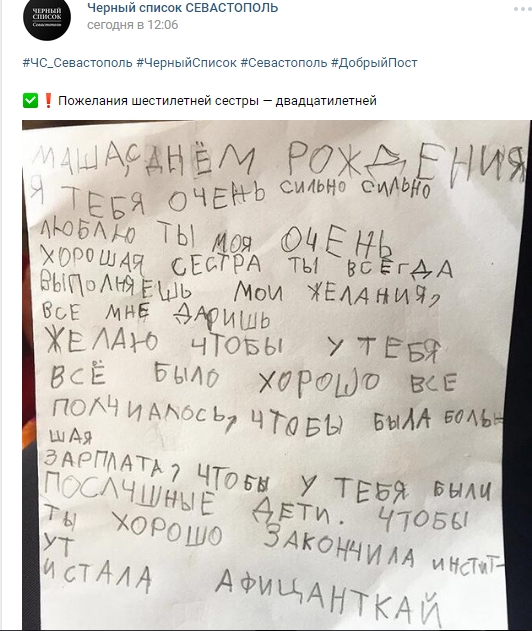 ЧЕРНЫЙ
СПИСОК
Севастополь
Черный список СЕВАСТОПОЛЬ
сегодня в 12:06
#ЧС_Севастополь #ЧерныйСписок #Севастополь #ДобрыйПост
✅❗ Пожелания шестилетней сестры — двадцатилетней
МАША, С ДНЁМ РОЖДЕНИЯ
Я ТЕБЯ ОЧЕНЬ СИЛЬНО СИЛЬНО
ЛЮБЛЮ ТЫ МОЯ ОЧЕНЬ
ХОРОШАЯ СЕСТРА ТЫ ВСЕГДА
ВЫПОЛНЯЕШЬ МОИ ЖЕЛАНИЯ,
ВСЕ МНЕ ДАРИШЬ
ЖЕЛАЮ ЧТОБЫ У ТЕБЯ
ВСЁ БЫЛО ХОРОШО ВСЕ
ПОЛЧИАЛОСЬ, ЧТОБЫ БЫЛА БОЛЬ-
ШАЯ
ЗАРПЛАТА, ЧТОБЫ У ТЕБЯ БЫЛИ
ПОСЛУШНЫЕ ДЕТИ. ЧТОБЫ
ТЫ ХОРОШО ЗАКОНЧИЛА ИНСТИТ-
УТ
И СТАЛА АФИЦАНТКАЙ